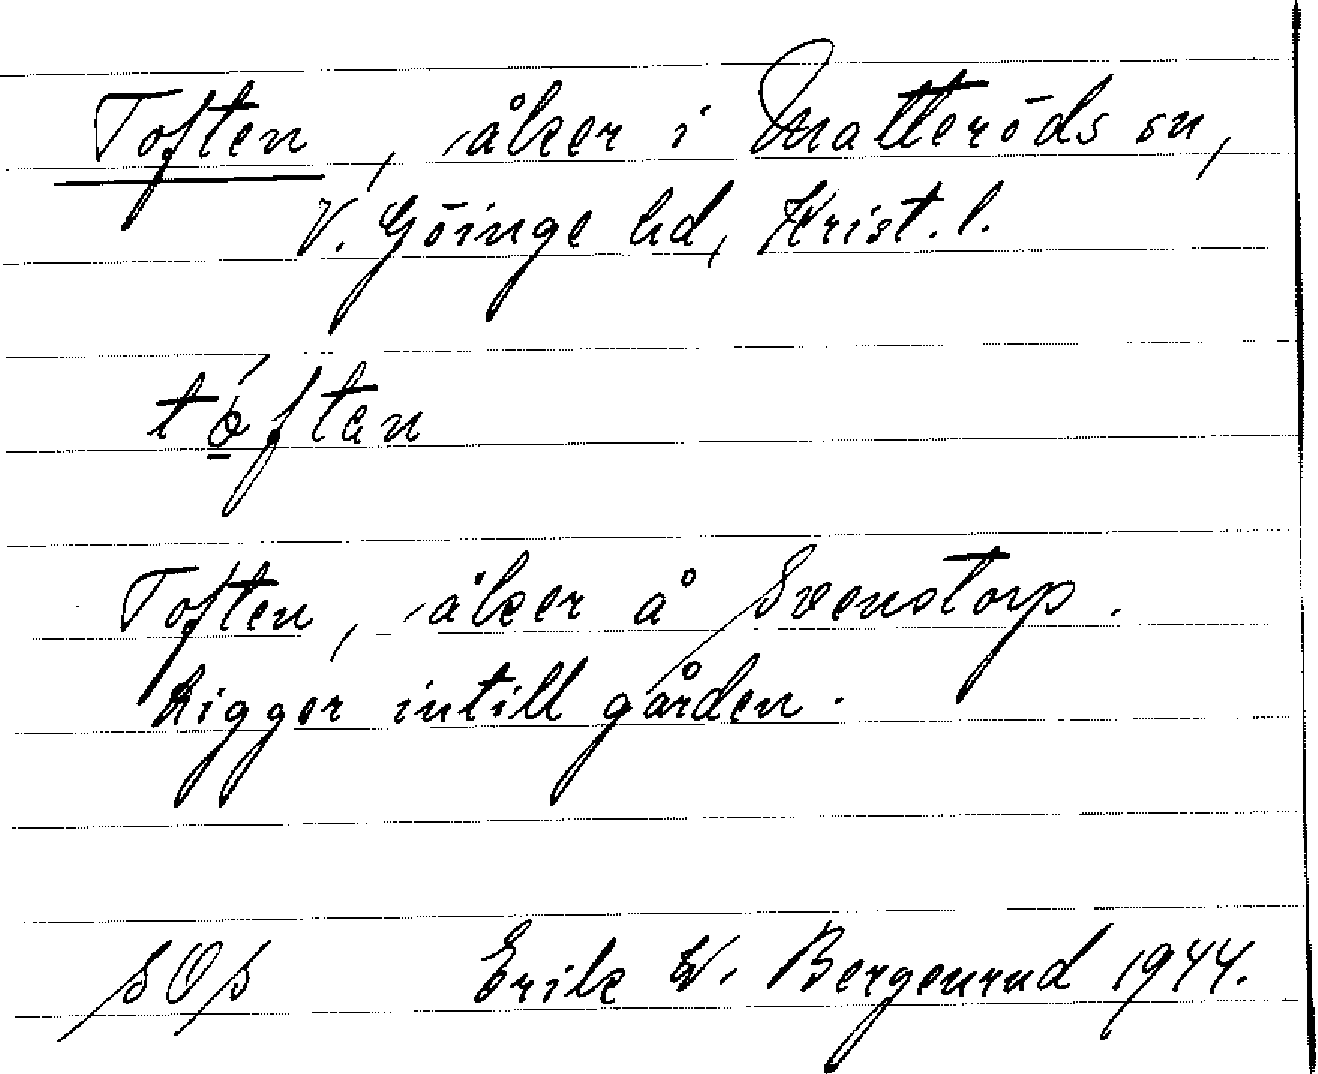 Toften, åker i Matteröds sn,
V. Göinge hd, Krist. l.
tóftan
Toften, åker å Svenstorp.
Ligger intill gården.
SOS Erik W. Bergenrud 1944.